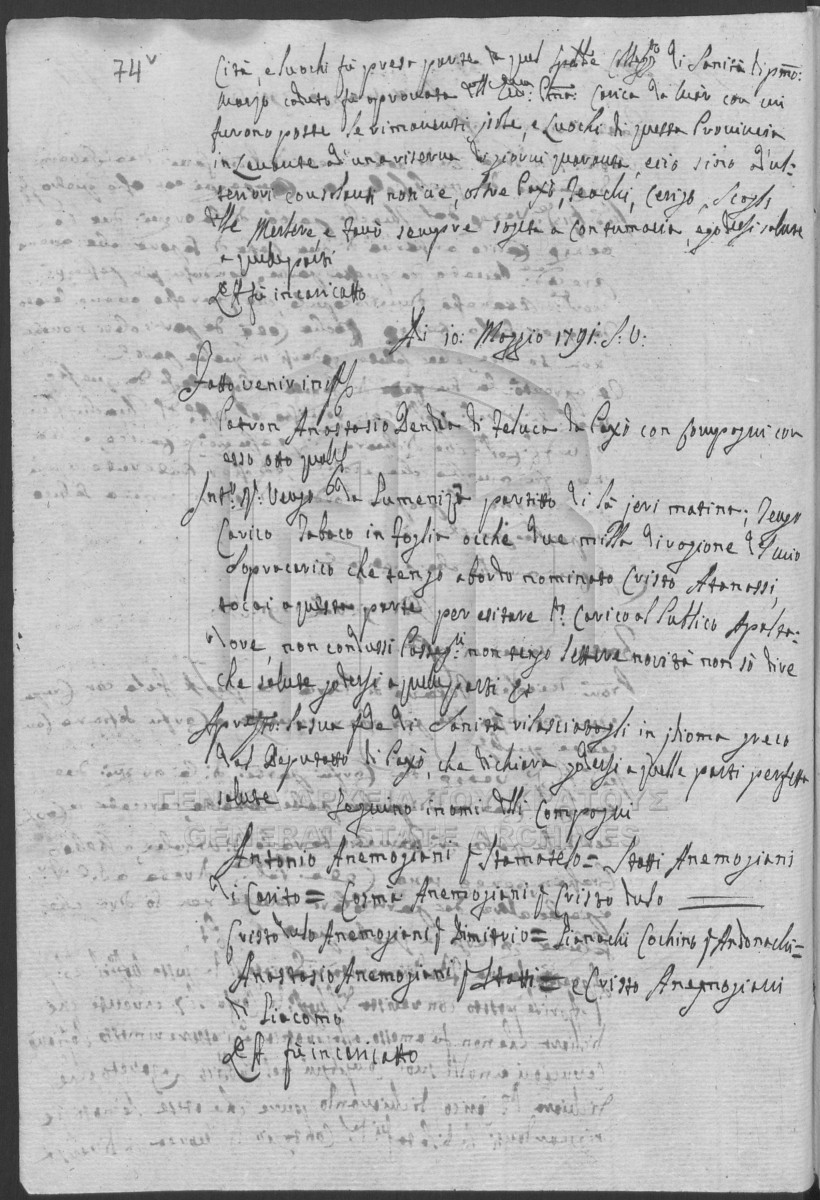 74v
Cità, e Luochi fù presa parte da quel Spette Collegio di Sanità di pmo:
Marzo caduto fù aprovata dall' Ecc: Pma: Carica da Mar con cui
furono poste le rimanenti Isole, e Luochi di questa Provincia
in Levante d'una riserva di giorni quaranta, e ciò sino ad ul=
teriori consolanti notizie, oltre Paxò, Teachi, Cerigo, Scogli
delle Merlere e Fanò sempre sogeta a contumacia, e godersi salute
a quelle parti
Et fù incaricatto
Adi 10: Maggio 1791: S: V:
Fatto venir in
Patron Anastasio Dendia di Feluca da Paxò con Compagni con
esso otto quali
Intto Rde Vengo da Gumenizza partitto di là jeri matina; Tengo
Carico Tabaco in Foglia occhè due milla di ragione del mio
Sopracarico che tengo a bordo nominato Cristo Atanassi,
tocai a questa parte per esitare il Carico al Publico Apalta=
dove, non condussi Passagri non tengo Lettere novità non sò dire
che salute godersi a quelle parti
Apresto: la sua fede di Sanità rilasciatogli in jdioma greco
dal Deputatto di Paxò, che dichiara godersi a quelle parti perfetta
salute Seguino i nomi delli Compagni
Antonio Anemogiani q Stamatelo = Statti Anemogiani
di Carito = Cosmà Anemogiani q Cristodulo
Cristodulo Anemogiani q Dimitrio = Gianachi Cochino q Andonachi =
Anastasio Anemogiani q Statti = e Cristo Anemogiani
di Giacomo
Et fù incaricatto
ΓΕΝΙΚΑ ΑΡΧΕΙΑ ΤΟΥ ΚΡΑΤΟΥΣ
GENERAL STATE ARCHIVES